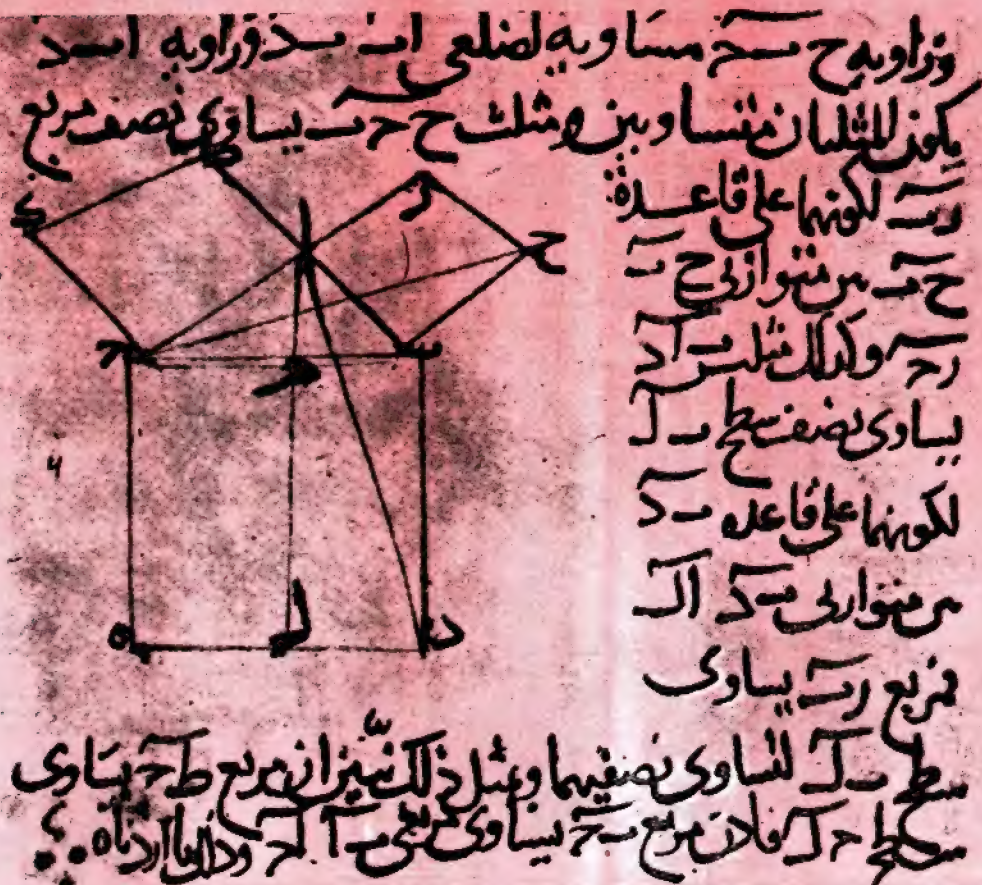 وزاویه ح ب ح مساویه لضلعی ا ب ب د وزاویه ا ب د
یکون المثلثان متساویین ومثلث ح ح ب یساوی نصف مربع
ر ب لکونهما علی قاعدة
ح ب بین متوازیی ح ب
ر ح وکذلک مثلث ب ا د
یساوی نصف سطح ب ل
لکونهما علی قاعده ب د
بین متوازیی ب د ا ل
فمربع ر ب یساوی
سطح ب ل لتساوی نصفیهما وبمثل ذلک نبین ان مربع ط ح یساوی
سطح ح ل فاذن مربع ب ح یساوی مربعی ب ا ا ح وذلک ما اردناه
ط
ی
ا
ر
ح
ح
ب
ه
ل
د